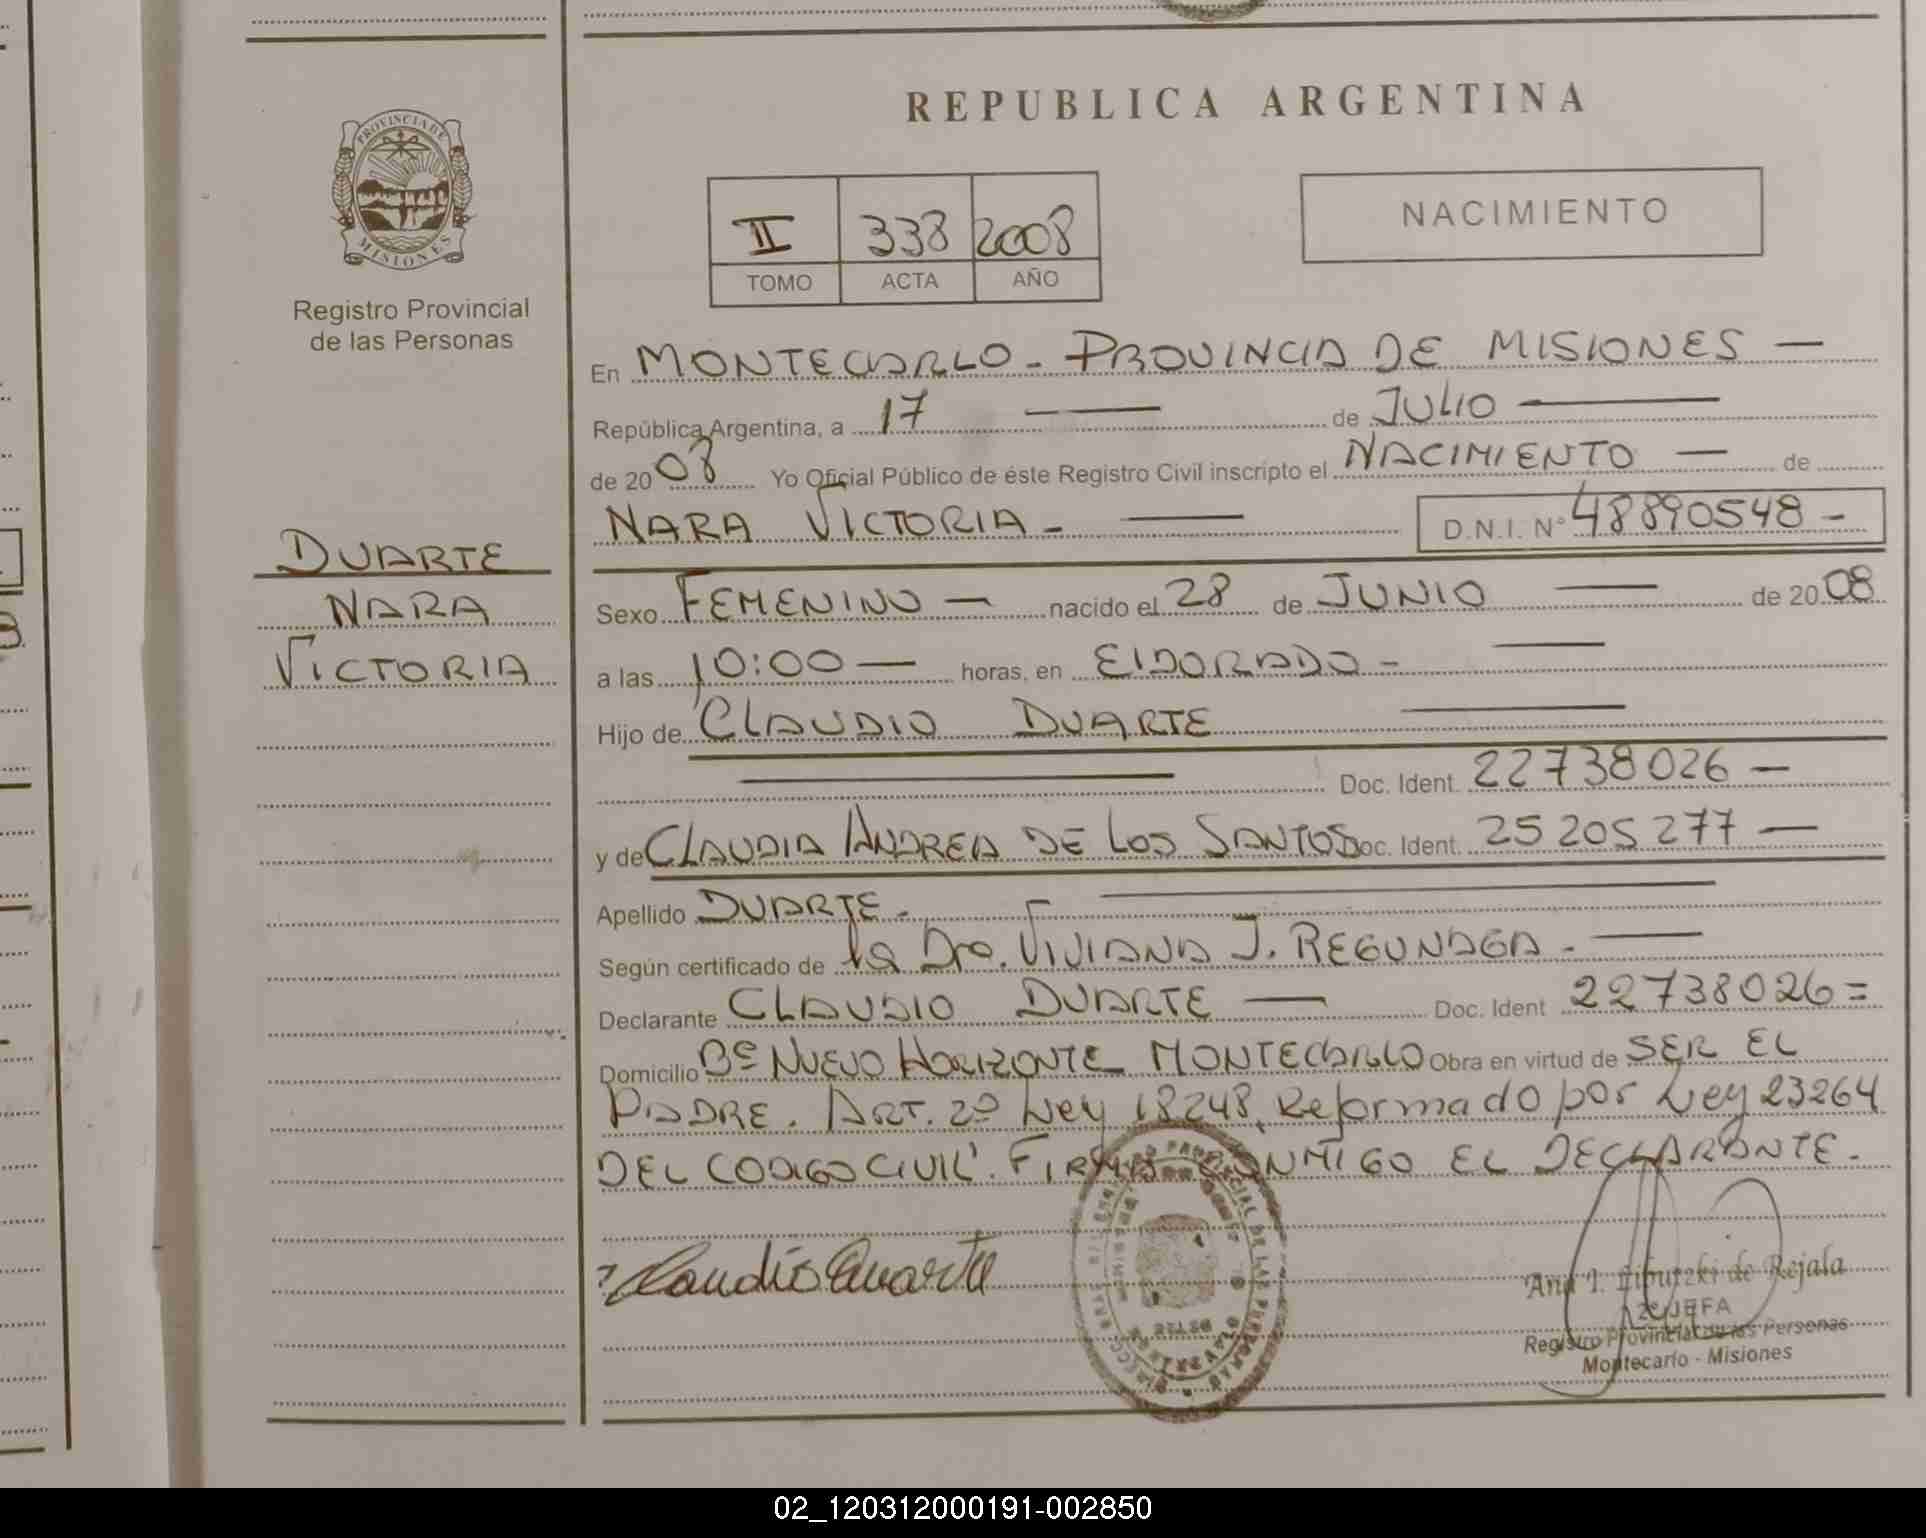 PROVINCIA DE
MISIONES
Registro Provincial
de las Personas
DUARTE
NARA
VICTORIA
REPUBLICA ARGENTINA
II 338 2008
TOMO ACTA AÑO
NACIMIENTO
En MONTECARLO - PROVINCIA DE MISIONES —
República Argentina, a 17 — de JULIO —
de 2008 Yo Oficial Público de éste Registro Civil inscripto el NACIMIENTO — de
NARA VICTORIA - — D.N.I. N° 48890548 -
Sexo FEMENINO — nacido el 28 de JUNIO — de 2008
a las 10:00 — horas, en ElDORADO - —
Hijo de CLAUDIO DUARTE —
— Doc. Ident. 22738026 —
y de CLAUDIA ANDREA DE LOS SANTOS Doc. Ident. 25205277 —
Apellido DUARTE. —
Según certificado de la Dra. VIVIANA J. REGUNAGA - —
Declarante CLAUDIO DUARTE — Doc. Ident 22738026=
Domicilio Bº NUEVO HORIZONTE MONTECARLO Obra en virtud de SER EL
PADRE. ART. 2º Ley 18248, Reformado por Ley 23264
DEL CODIGO CIVIL. FIRMA CONMIGO EL DECLARANTE.
Claudio Duarte
Ana I. de Rejala
2º JEFA
Registro Provincial de las Personas
Montecarlo - Misiones
02_120312000191-002850